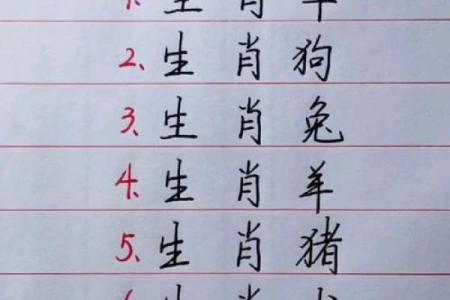 1、生肖
2、生肖狗
3、生肖兔
4、生肖羊
5、生肖猪
6、生肖